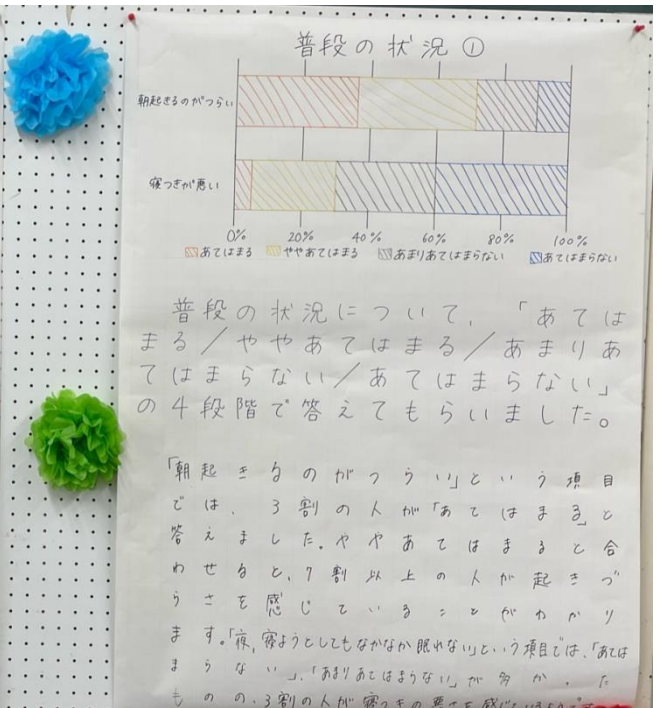 普段の状況①
朝起きるのがつらい
寝つきが悪い
0% 20% 40% 60% 80% 100%
あてはまる ややあてはまる あまりあてはまらない あてはまらない
普段の状況について、「あては
まる/ややあてはまる/あまりあ
てはまらない/あてはまらない」
の4段階で答えてもらいました。
「朝起きるのがつらい」という項目
では、3割の人が「あてはまる」と
答えました。ややあてはまると合
わせると、7割以上の人が起きづ
らさを感じていることがわかり
ます。「夜、寝ようとしてもなかなか眠れない」という項目では、「あては
まらない」、「あまりあてはまらない」が多かった
ものの、3割の人が寝つきの悪さを感じているようです